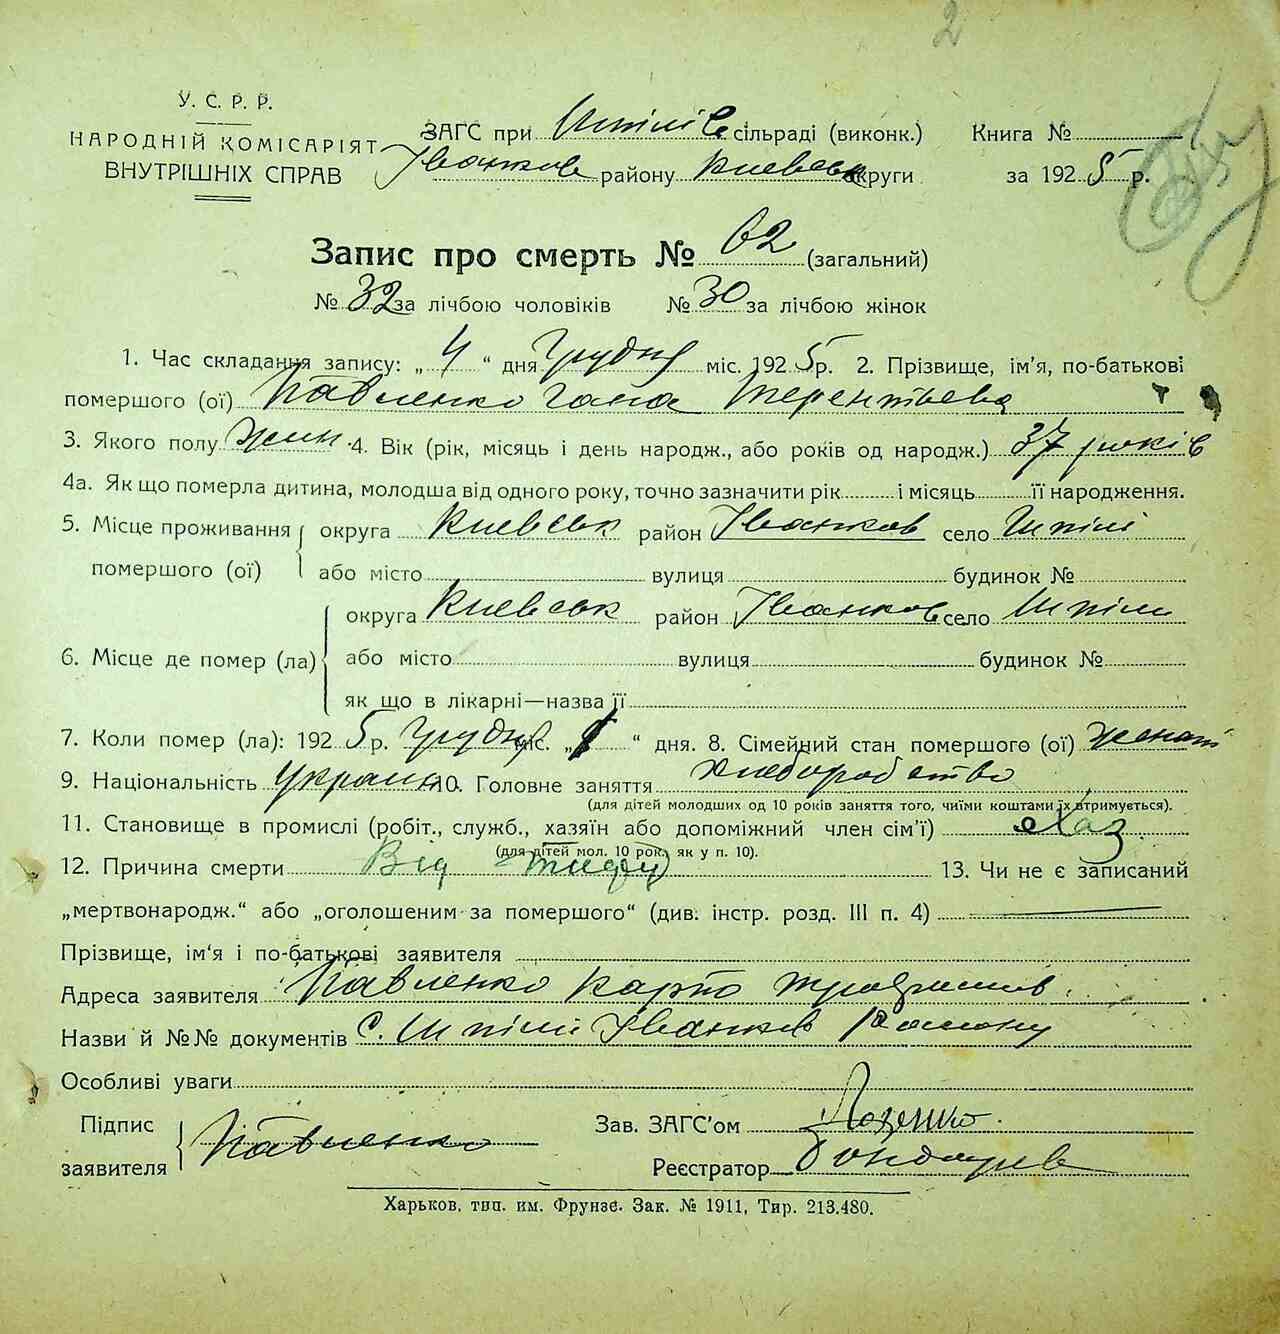 2
У. С. Р. Р.
НАРОДНІЙ КОМІСАРІЯТ
ВНУТРІШНІХ СПРАВ
ЗАГС при Шпілів сільраді (виконк.)
Іванков району Киевськ округи
Книга №
за 1925 р.
Запис про смерть № 62 (загальний)
№ 32 за лічбою чоловіків № 30 за лічбою жінок
1. Час складання запису: „4“ дня Грудня міс. 1925 р. 2. Прізвище, ім'я, по-батькові
помершого (ої) Павленко Гана Терентьева
3. Якого полу Жін. 4. Вік (рік, місяць і день народж., або років од народж.) 37 років
4а. Як що померла дитина, молодша від одного року, точно зазначити рік і місяць її народження.
5. Місце проживання помершого (ої) округа Киевськ район Іванков село Шпілі
або місто вулиця будинок №
6. Місце де помер (ла) округа Киевськ район Іванков село Шпіли
або місто вулиця будинок №
як що в лікарні—назва її
7. Коли помер (ла): 1925 р. Грудня міс. „ “ дня. 8. Сімейний стан помершого (ої) женат
9. Національність Украин 10. Головне заняття хлеборобство
(для дітей молодших од 10 років заняття того, чиїми коштами їх втримується).
11. Становище в промислі (робіт., служб., хазяїн або допоміжний член сім'ї) Хаз.
(для дітей мол. 10 рок. як у п. 10).
12. Причина смерти Від тифу 13. Чи не є записаний
„мертвонародж.“ або „оголошеним за помершого“ (див. інстр. розд. III п. 4)
Прізвище, ім'я і по-батькові заявителя
Адреса заявителя Павленко Карпо
Назви й №№ документів С. Шпілі Іванков Району
Особливі уваги
Підпис заявителя Павленко
Зав. ЗАГС'ом
Реєстратор
Харьков, тип. им. Фрунзе. Зак. № 1911, Тир. 213.480.